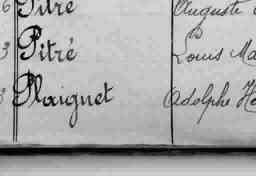 Pitré Auguste
3 Pitré Louis Ma
Plaignet Adolphe